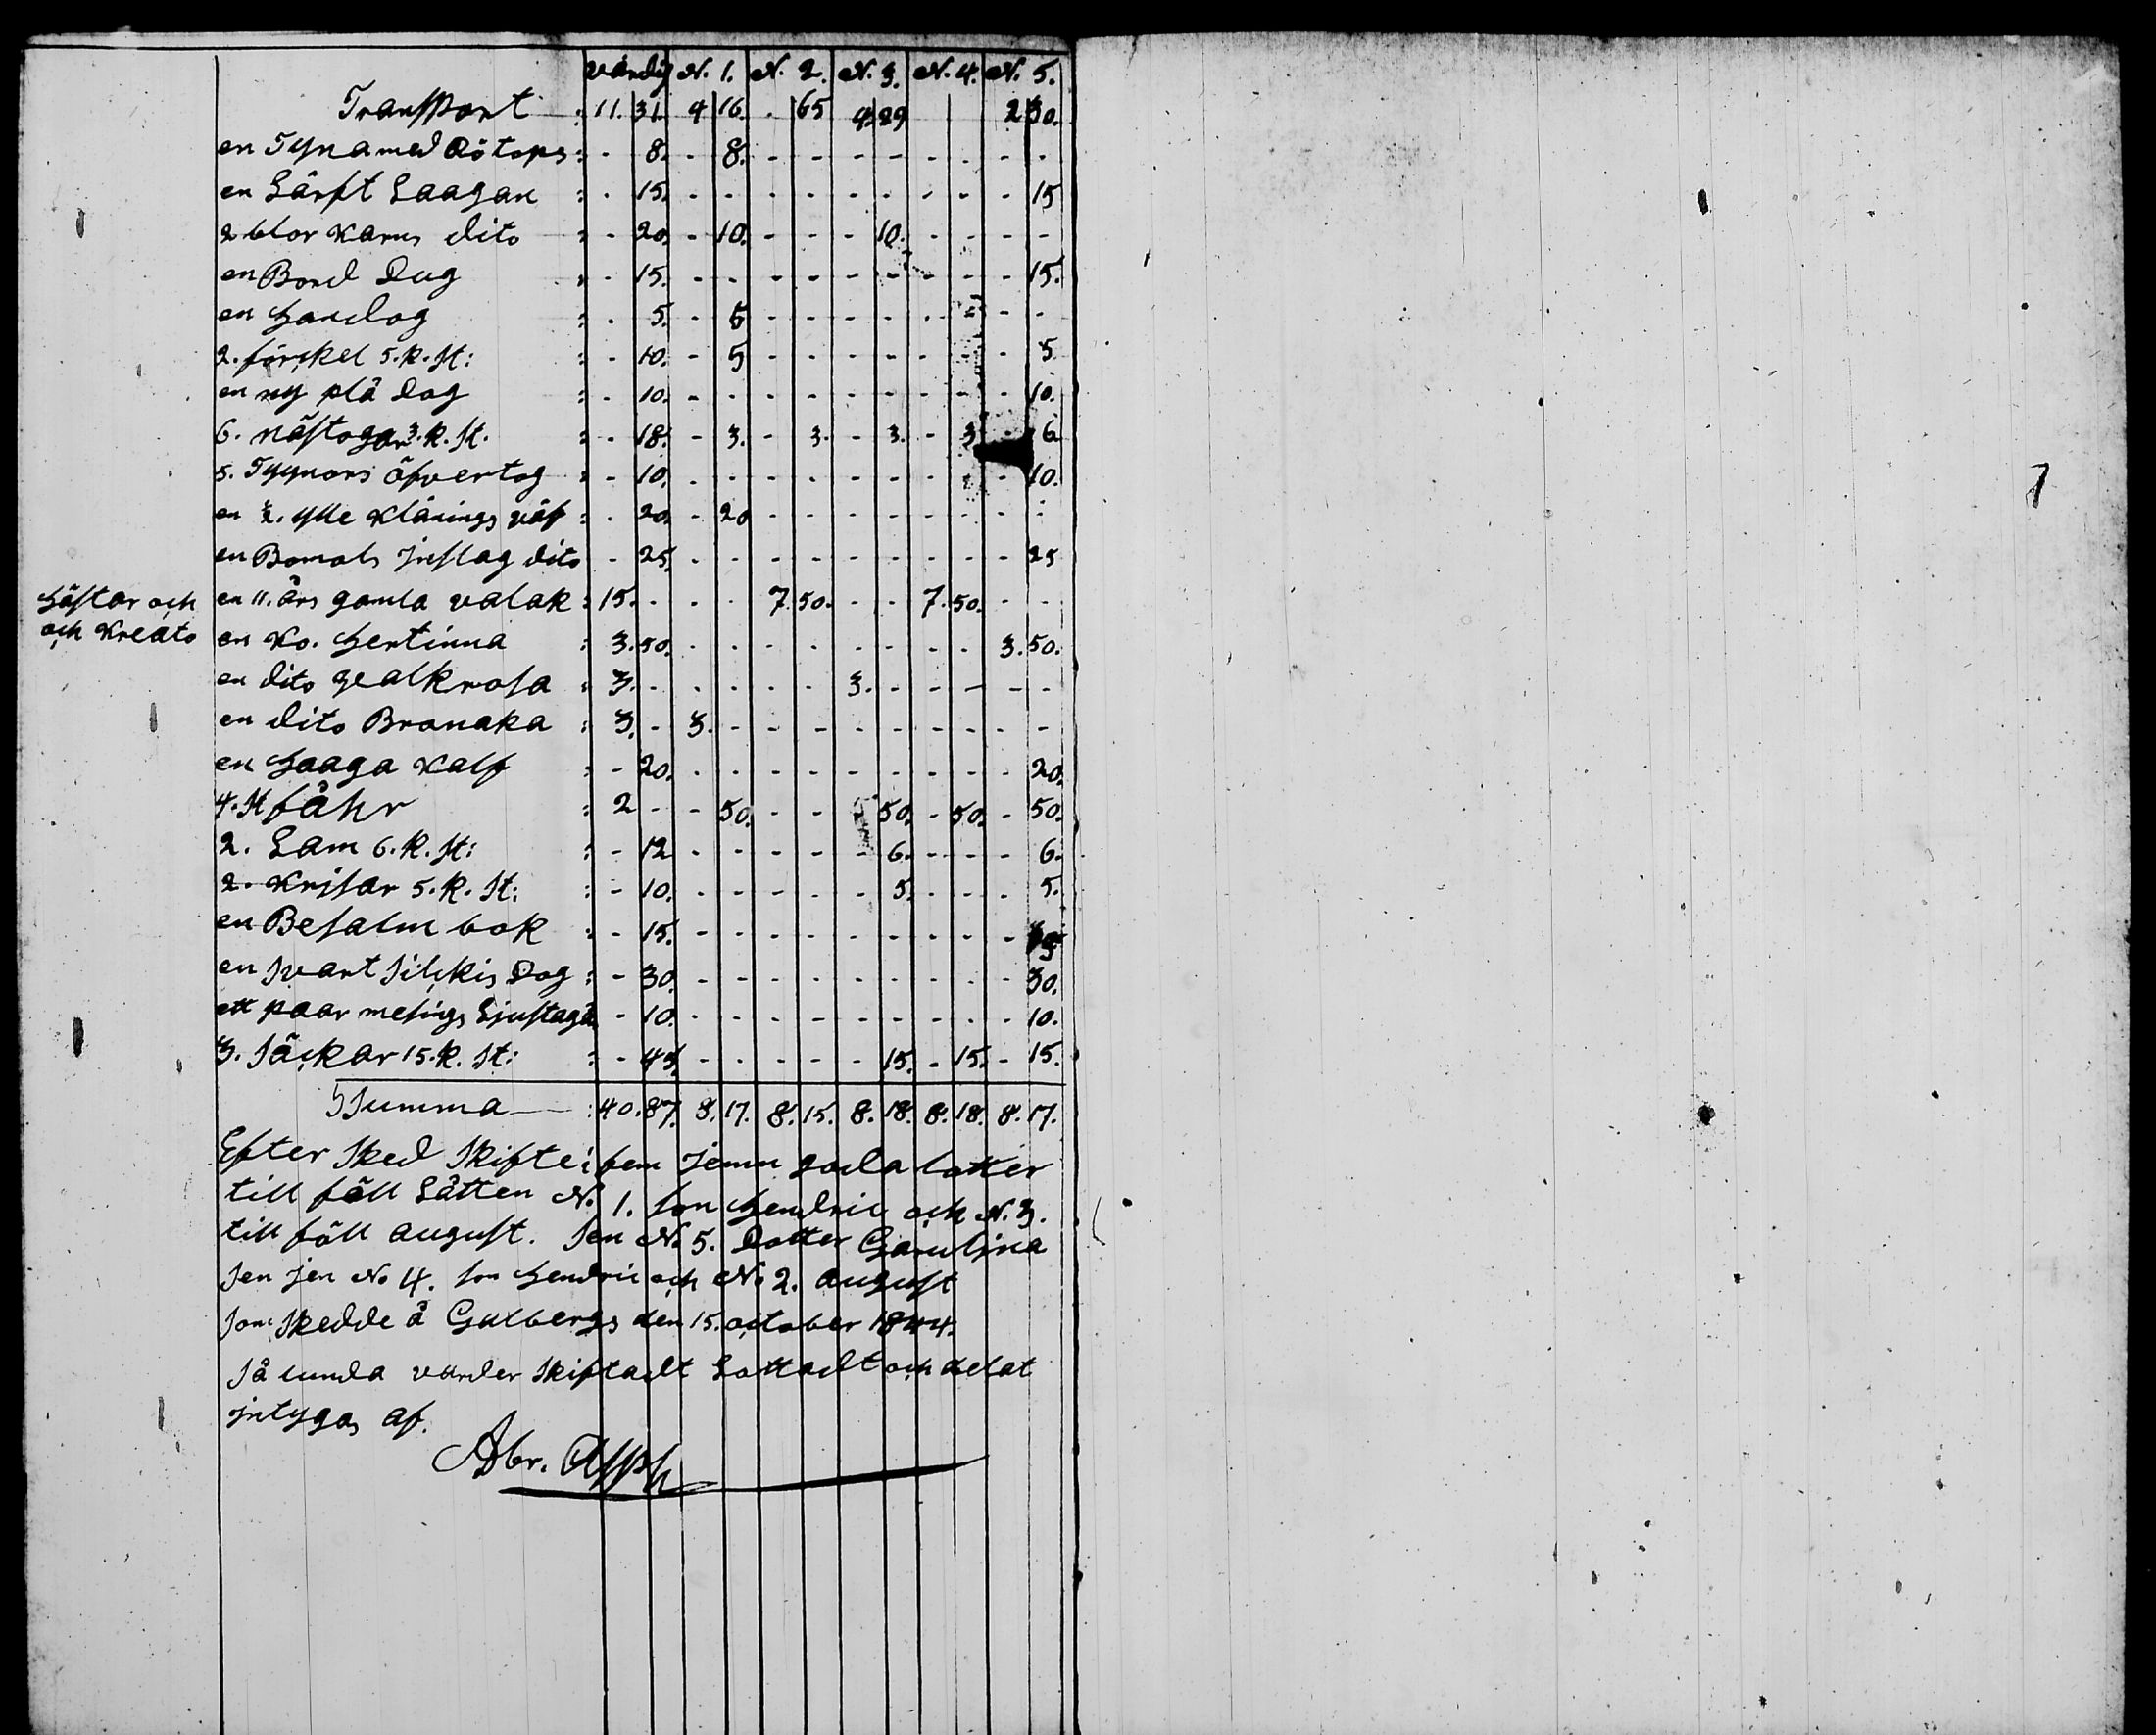 värdig N. 1. N. 2. N. 3. N. 4. N. 5.
Transport : 11. 31. 4 16. . 65 4. 29 2 30.
en Tyna med Rötops : - 8. - 8. - - - - - - - -
en Lärft Laagan : - 15. - - - - - - - - - 15
2 blor Karns dito : - 20. - 10. - - - 10. - - - -
en Bord Dug : - 15. - - - - - - - - - 15.
en Handog : . 5. - 5 - - - - - - - -
2. förkel 5. k. St: : - 10. - 5 - - - - - - - 5
en ny plå dog : - 10. - - - - - - - - - 10.
6. nästogar 3. k. St. : - 18. - 3. - 3. - 3. - 3 - 6
5. Tyynors öfvertog : - 10. - - - - - - - - - 10.
en ½. ylle Klänings väf : . 20. - 20 - - - - - - - -
en Bomols Jnslag dito - 25. - - - - - - - - - 25
Hästar och en 11. års gamla valak : 15. - - - 7. 50. - - 7. 50. - -
och Kreato en Ko. Hertinna : 3. 50. - - - - - - - - 3. 50.
en dito Gealkrosa : 3. - - - - - 3. - - - - -
en dito Bronaka : 3. - 3. - - - - - - - - -
en Haaga Kalf : - 20. - - - - - - - - - 20.
4. St fåhr : 2 - - 50. - - 50. - 50. - 50.
2. Lam 6. k. St: : - 12 - - - - - 6. - - - 6.
2. Krisar 5. k. St: : - 10. - - - - - 5. - - - 5.
en Besalm bok : - 15. - - - - - - - - - 15
en Svart Silkis Dog : - 30. - - - - - - - - - 30.
ett paar mesings Ljustaga - 10. - - - - - - - - - 10.
3. Säckar 15. k. St: : - 45. - - - - - 15. - 15. - 15.
Summa : 40. 87. 8. 17. 8. 15. 8. 18. 8. 18. 8. 17.
Efter Sked Skifte i fem Jemn goda lotter
till föll Låtten N. 1. Son Hendric och N. 3.
till föll august. Sen No 5. Dotter Carulina
Sen Jen No 4. Son Hendric och No 2. august
Som Skedde å Gulbergs den 15. october 1844.
Så lunda varder Skiftadt Lottadt och delat
Jntygas af.
Abr.